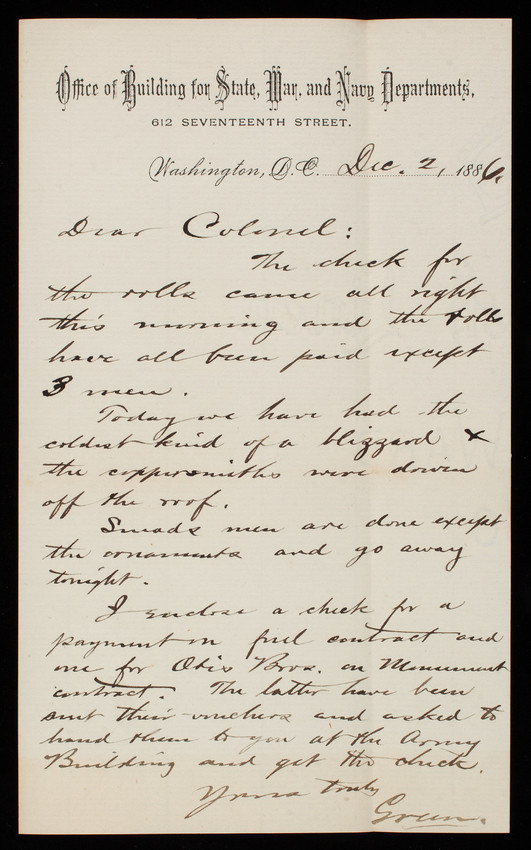 Office of Building for State, War, and Navy Departments,
612 SEVENTEENTH STREET.
Washington, D.C. Dec. 2, 1886.
Dear Colonel:
The check for
the rolls came all right
this morning and the rolls
have all been paid except
3 men.
Today we have had the
coldest kind of a blizzard &
the coppersmiths were driven
off the roof.
Smeads men are done except
the ornaments and go away
tonight.
I enclose a check for a
payment on fuel contract and
one for Otis Bros. on Monument
contract. The latter have been
sent their vouchers and asked to
hand them to you at the Army
Building and get the check.
Yours truly
Green.